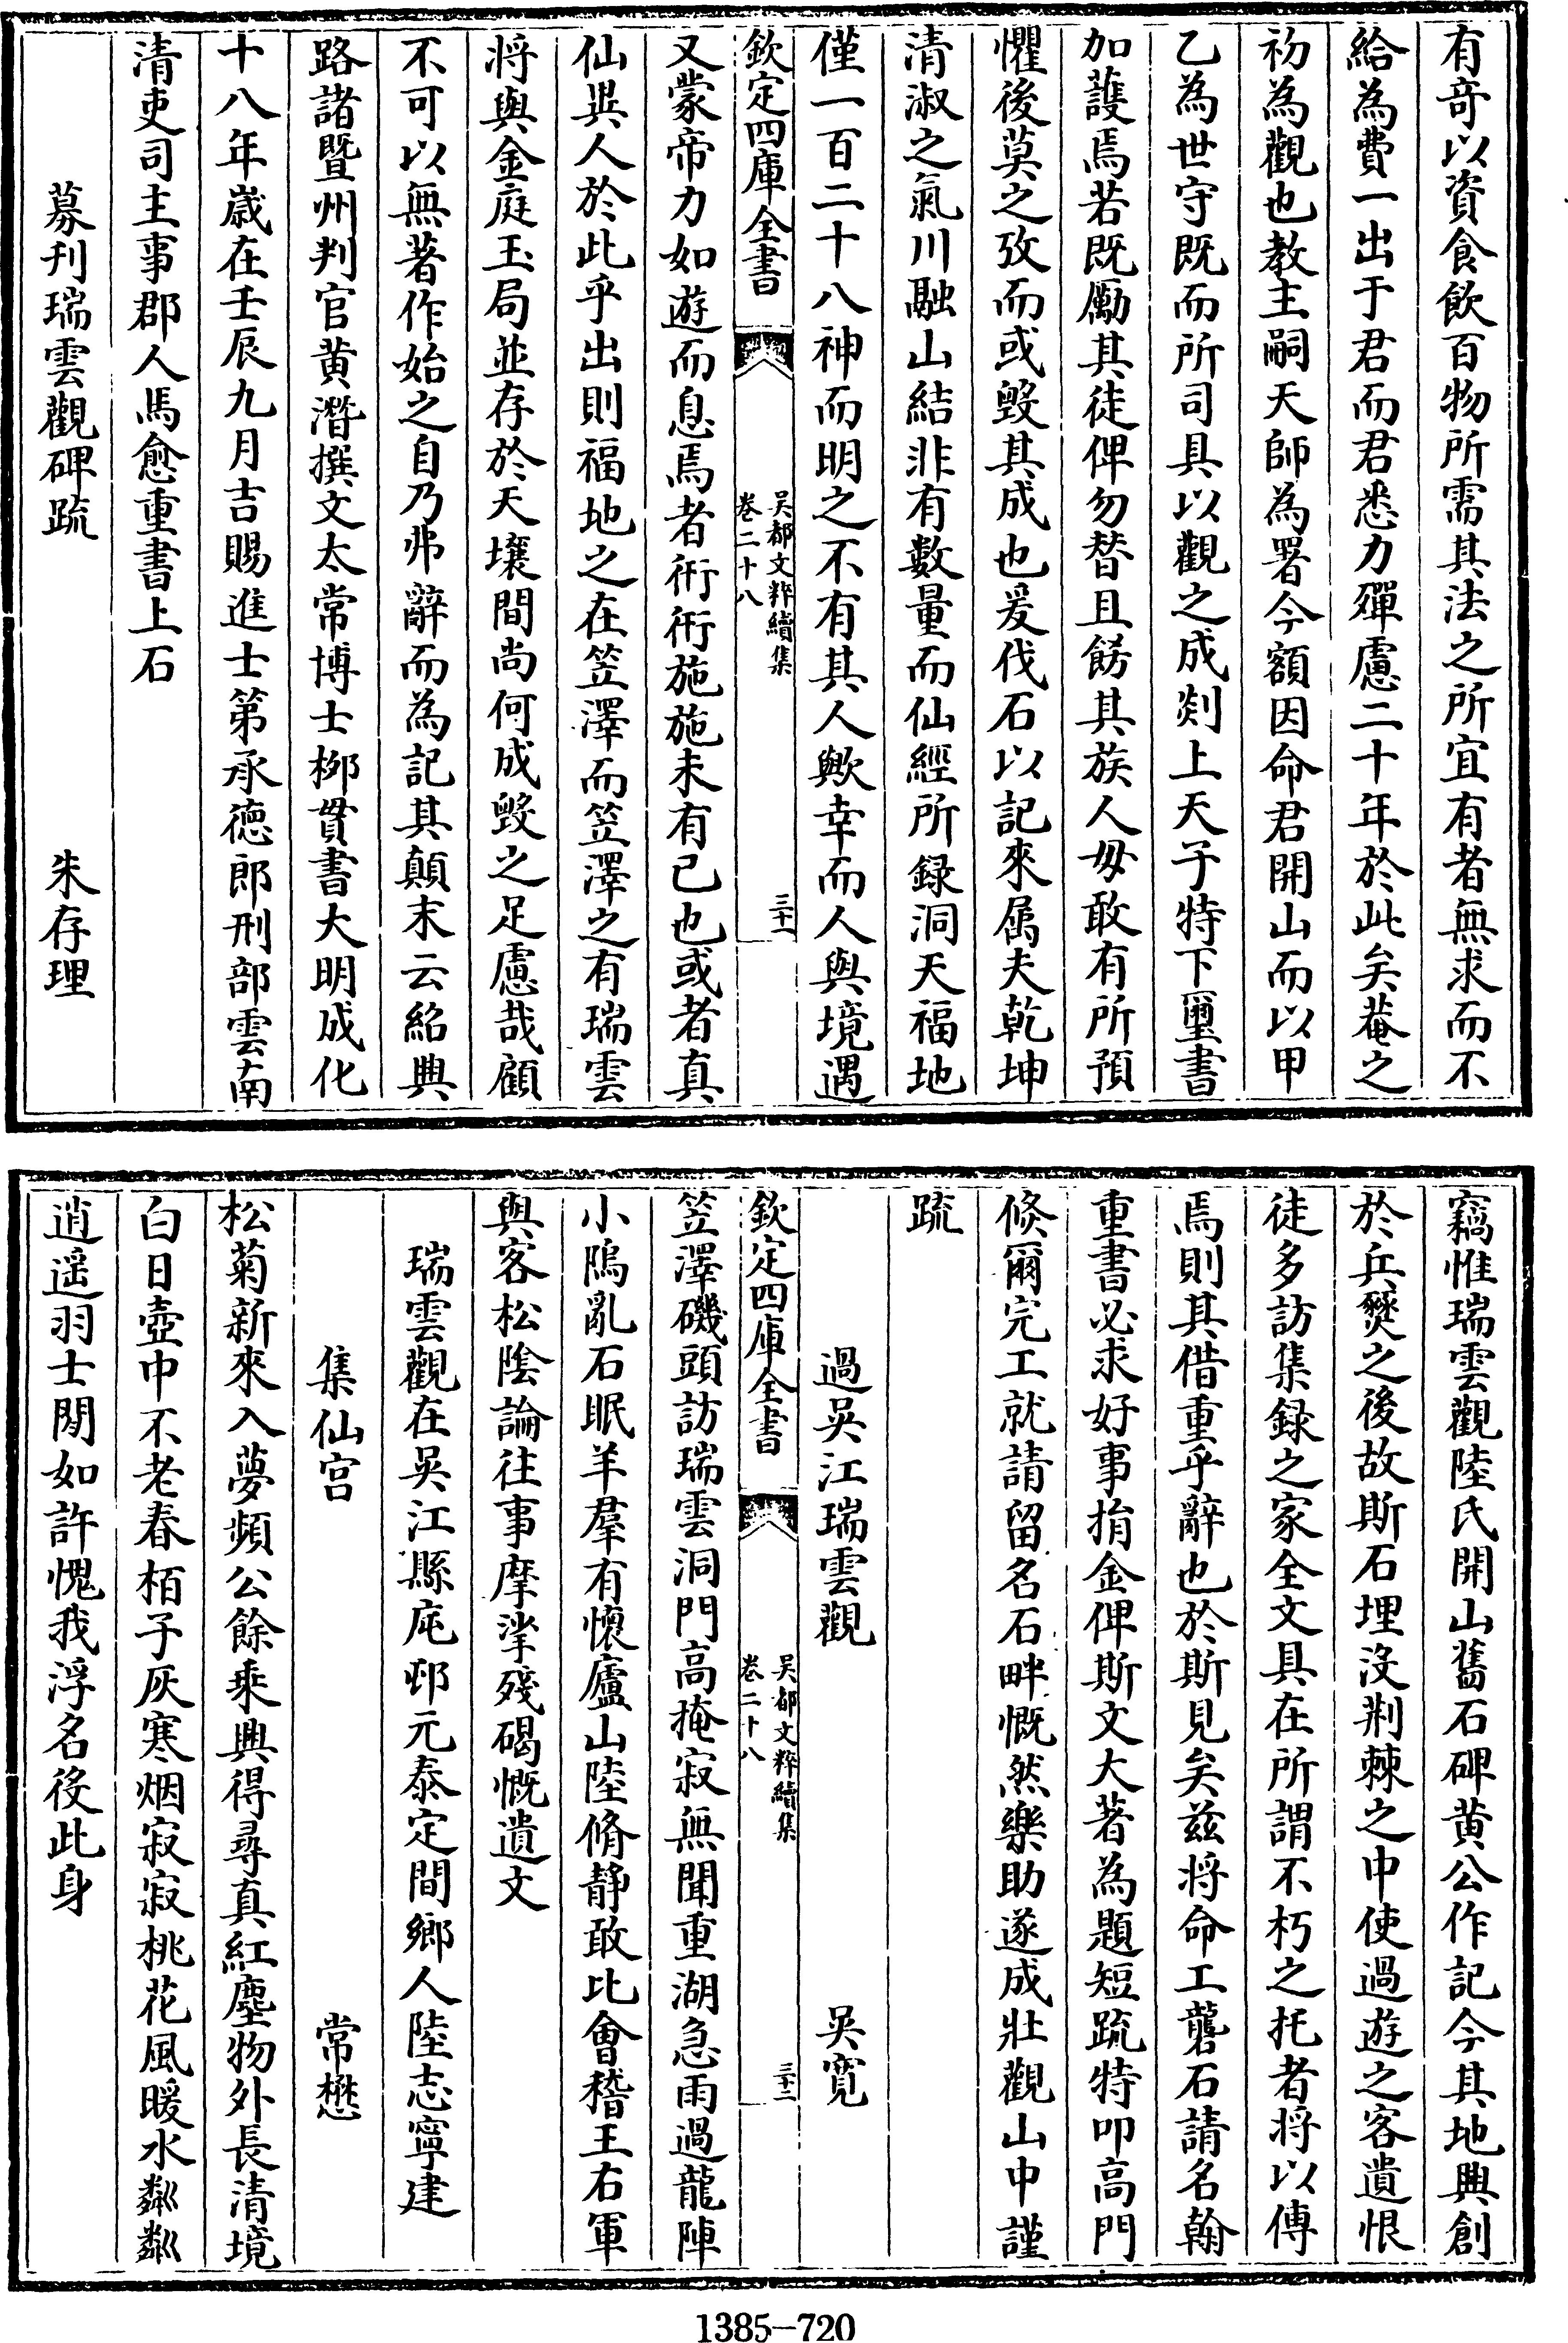 有竒以資食飲百物所需其法之所宜有者無求而不
給為費一出于君而君悉力殫慮二十年於此矣菴之
初為觀也教主嗣天師為署今額因命君開山而以甲
乙為世守既而所司具以觀之成剡上天子特下璽書
加䕶焉若既勵其徒俾勿替且餝其族人毋敢有所預
懼後莫之攷而或毁其成也爰伐石以記來屬夫乾坤
清淑之氣川融山結非有數量而仙經所録洞天福地
僅一百二十八神而明之不有其人歟幸而人與境遇
欽定四庫全書
吴都文粹續集
卷二十八
三十一
又蒙帝力如遊而息焉者衎衎施施未有已也或者真
仙異人於此乎出則福地之在笠澤而笠澤之有瑞雲
将與金庭玉局並存於天壤間尚何成毁之足慮哉顧
不可以無著作始之自乃弗辭而為記其顛末云紹興
路諸暨州判官黄溍撰文太常博士栁貫書大明成化
十八年嵗在壬辰九月吉賜進士第承徳郎刑部雲南
清吏司主事郡人馬愈重書上石
募刋瑞雲觀碑疏　朱存理
竊惟瑞雲觀陸氏開山舊石碑黄公作記今其地興創
於兵燹之後故斯石埋没荆棘之中使過遊之客遺恨
徒多訪集録之家全文具在所謂不朽之托者将以傳
焉則其借重乎辭也於斯見矣兹将命工礱石請名翰
重書必求好事捐金俾斯文大著為題短疏特叩高門
倐爾完工就請留名石畔慨然樂助遂成壯觀山中謹
疏
過吴江瑞雲觀　吴寛
欽定四庫全書
吴都文粹續集
卷二十八
三十二
笠澤磯頭訪瑞雲洞門高掩寂無聞重湖急雨過龍陣
小隖亂石眠羊羣有懷廬山陸脩静敢比會稽王右軍
與客松陰論往事摩挲殘碣慨遺文
瑞雲觀在吴江縣庉邨元泰定間鄉人陸志寧建
集仙宫　常懋
松菊新來入夢頻公餘乘興得尋真紅塵物外長清境
白日壺中不老春栢子灰寒烟寂寂桃花風暖水粼粼
逍遥羽士閒如許愧我浮名役此身
1385-720